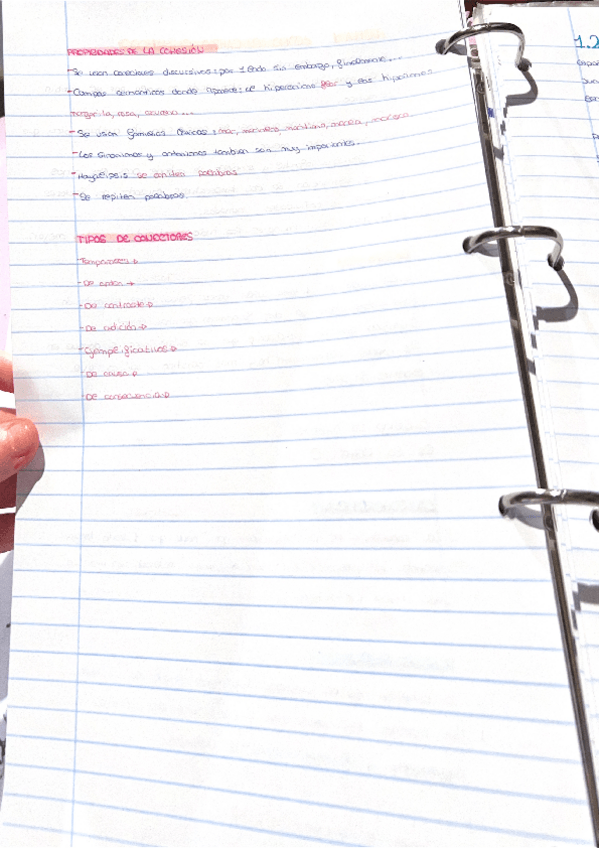 PROPIEDADES DE LA COHESIÓN
- Se usan conectores discursivos: por 1 lado, sin embargo, finalmente...
- Campos semánticos donde aparece: de hiperónimos flor y sus hipónimos
la, rosa,
- Se usan familias léxicas: mar, marinero, marítimo, marea, marisco.
- Los sinónimos y antónimos también son muy importantes.
- Hay elipsis se omiten palabras
- Se repiten palabras
TIPOS DE CONECTORES
- Temporales →
- De orden →
- De contraste →
- De adición →
- Ejemplificativos →
- De causa →
- De consecuencia →
1.2